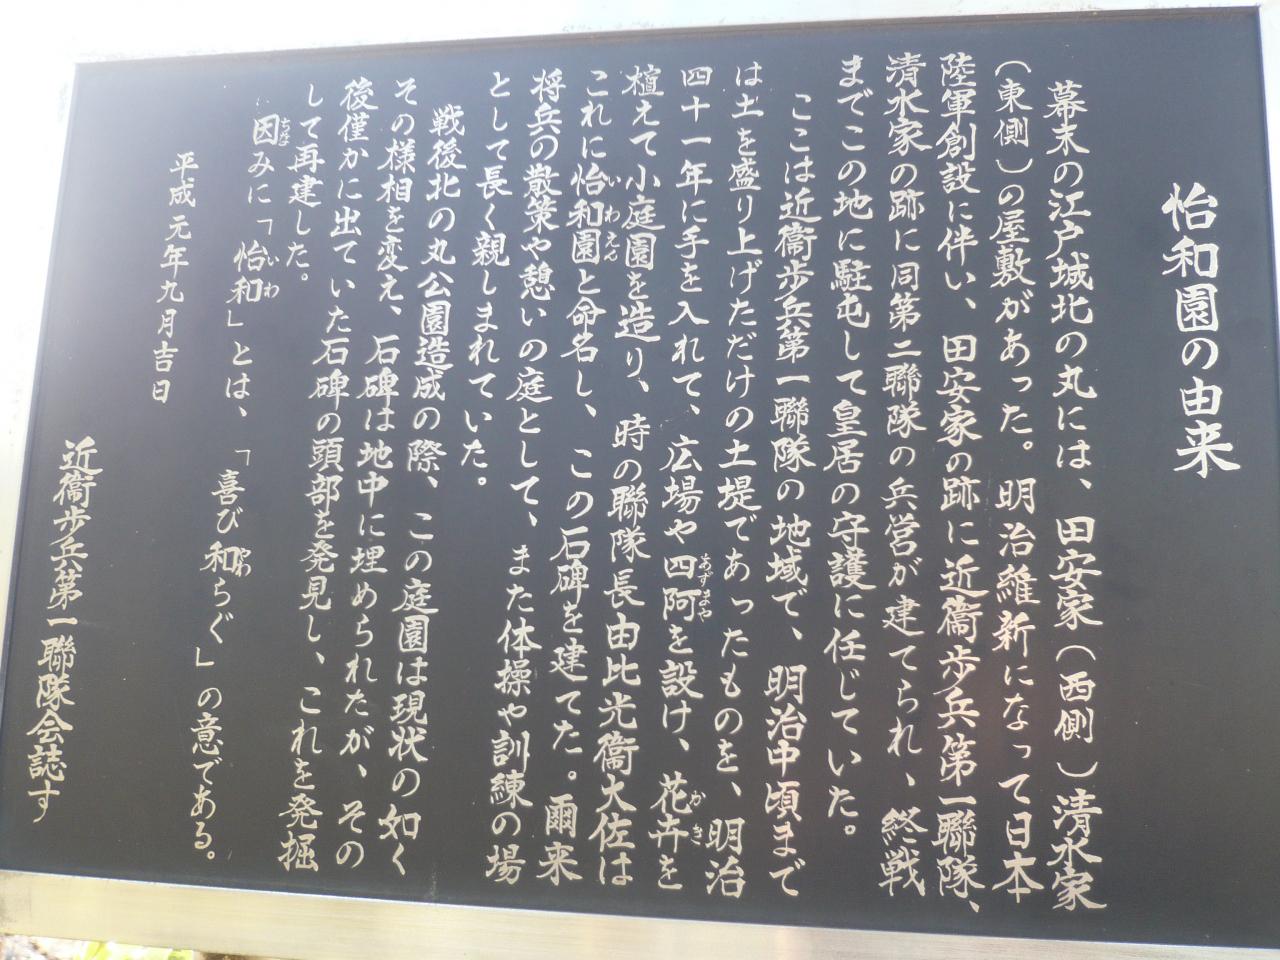 怡和園の由来
幕末の江戸城北の丸には、田安家（西側）清水家
（東側）の屋敷があった。明治維新になって日本
陸軍創設に伴い、田安家の跡に近衞歩兵第一聯隊、
清水家の跡に同第二聯隊の兵営が建てられ、終戦
までこの地に駐屯して皇居の守護に任じていた。
ここは近衞歩兵第一聯隊の地域で、明治中頃まで
は土を盛り上げただけの土堤であったものを、明治
四十一年に手を入れて、広場や四阿を設け、花卉を
あずまや
かき
植えて小庭園を造り、時の聯隊長由比光衞大佐は
これに怡和園と命名し、この石碑を建てた。爾来
いわえん
将兵の散策や憩いの庭として、また体操や訓練の場
として長く親しまれていた。
戦後北の丸公園造成の際、この庭園は現状の如く
その様相を変え、石碑は地中に埋められたが、その
後僅かに出ていた石碑の頭部を発見し、これを発掘
して再建した。
因みに「怡和」とは、「喜び和らぐ」の意である。
ちな
いわ
やわ
平成元年九月吉日
近衞歩兵第一聯隊会誌す